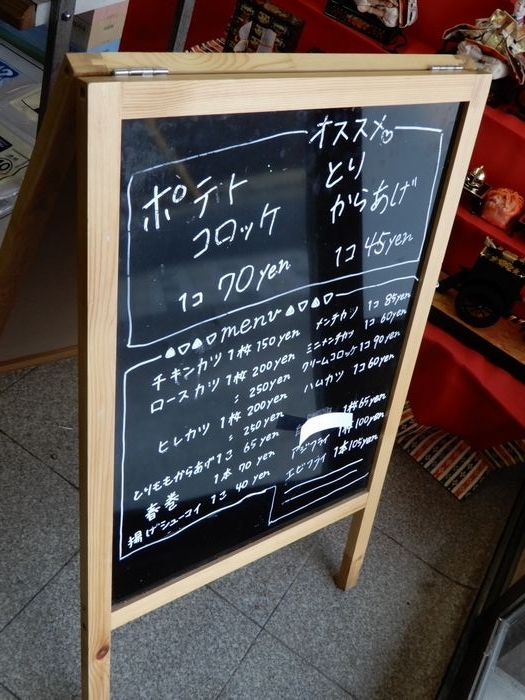 オススメ
ポテト
コロッケ
1コ 70yen
とり
からあげ
1コ 45yen
menu
チキンカツ 1枚 150yen
ロースカツ 1枚 200yen
〃 250yen
ヒレカツ 1枚 200yen
〃 250yen
とりももからあげ 1コ 65yen
春巻 1本 70yen
揚げシューコイ 1コ 40yen
メンチカツ 1コ 85yen
ミニメンチカツ 1コ 60yen
クリームコロッケ 1コ 90yen
ハムカツ 1コ 60yen
1枚 65yen
アジフライ 1枚 100yen
エビフライ 1本 105yen